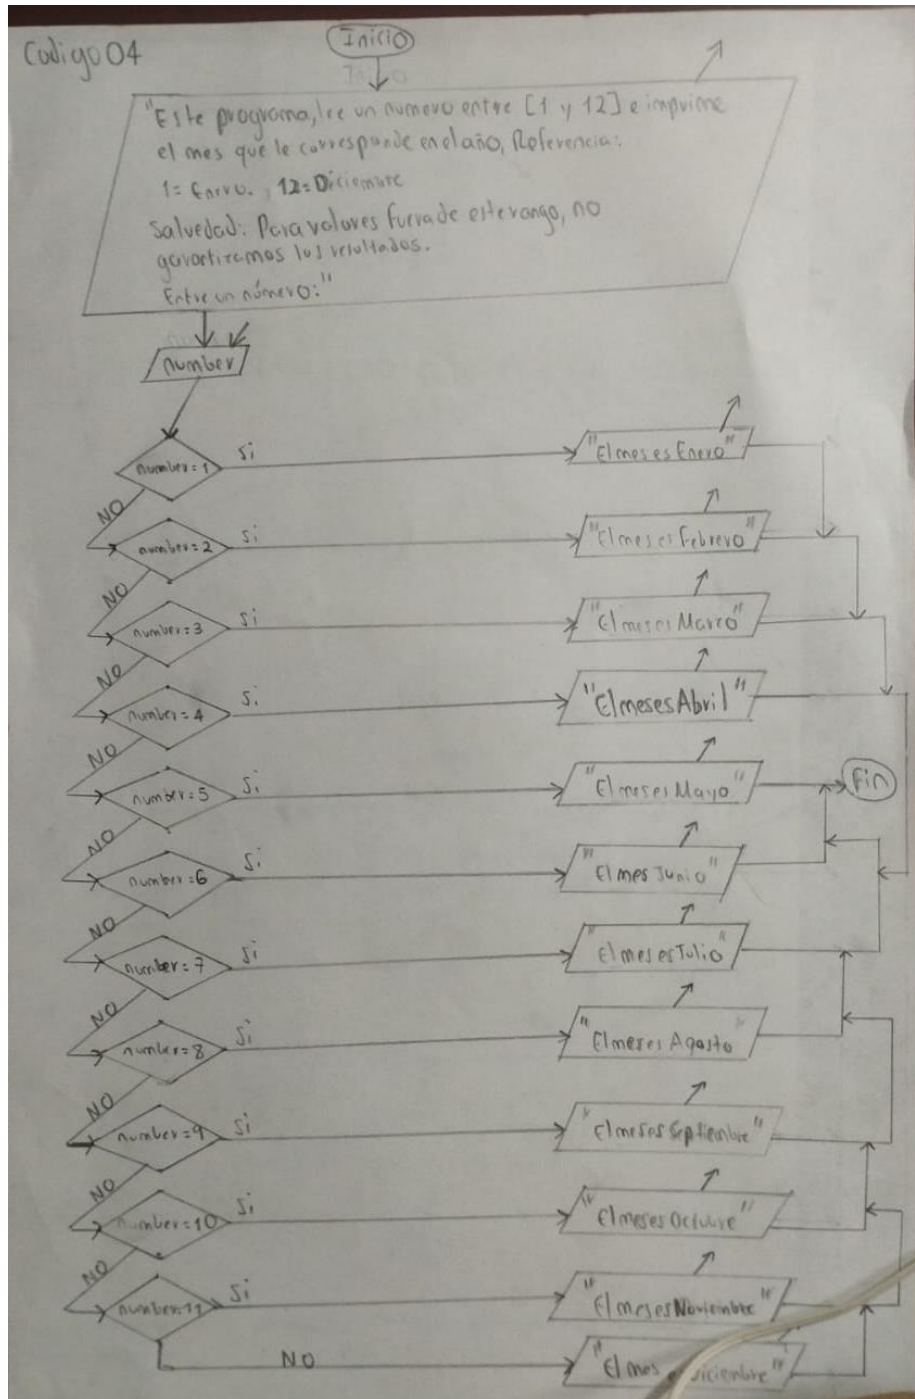 Codigo 04
Inicio
"Este programa, lee un numero entre [1 y 12] e imprime
el mes que le corresponde en el año, Referencia:
1= Enero. , 12= Diciembre
Salvedad: Para valores fuera de este rango, no
garantizamos los resultados.
Entre un número:"
number
number=1
Si
"El mes es Enero"
NO
number=2
Si
"El mes es Febrero"
NO
number=3
Si
"El mes es Marzo"
NO
number=4
Si
"El mes es Abril"
NO
number=5
Si
"El mes es Mayo"
Fin
NO
number=6
Si
"El mes Junio"
NO
number=7
Si
"El mes es Julio"
NO
number=8
Si
"El mes es Agosto"
NO
number=9
Si
"El mes es Septiembre"
NO
number=10
Si
"El mes es Octubre"
NO
number=11
Si
"El mes es Noviembre"
NO
"El mes